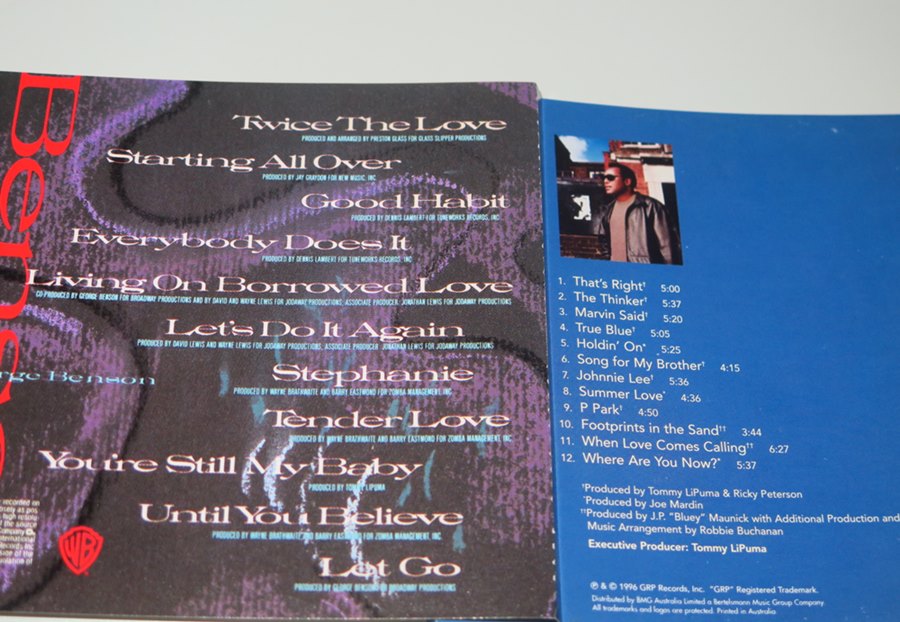 Benso
rge Benson
Twice The Love
PRODUCED AND ARRANGED BY PRESTON GLASS FOR GLASS SLIPPER PRODUCTIONS
Starting All Over
PRODUCED BY JAY GRAYDON FOR NEW MUSIC, INC
Good Habit
PRODUCED BY DENNIS LAMBERT FOR TUNEWORKS RECORDS, INC
Everybody Does It
PRODUCED BY DENNIS LAMBERT FOR TUNEWORKS RECORDS, INC
Living On Borrowed Love
CO-PRODUCED BY GEORGE BENSON FOR BROADWAY PRODUCTIONS AND BY DAVID AND WAYNE LEWIS FOR JODAWAY PRODUCTIONS; ASSOCIATE PRODUCER: JONATHAN LEWIS FOR JODAWAY PRODUCTIONS
Let's Do It Again
PRODUCED BY DAVID LEWIS AND WAYNE LEWIS FOR JODAWAY PRODUCTIONS; ASSOCIATE PRODUCER: JONATHAN LEWIS FOR JODAWAY PRODUCTIONS
Stephanie
PRODUCED BY WAYNE BRATHWAITE AND BARRY EASTMOND FOR ZOMBA MANAGEMENT, INC
Tender Love
PRODUCED BY WAYNE BRATHWAITE AND BARRY EASTMOND FOR ZOMBA MANAGEMENT, INC
You're Still My Baby
PRODUCED BY TOMMY LIPUMA
Until You Believe
PRODUCED BY WAYNE BRATHWAITE AND BARRY EASTMOND FOR ZOMBA MANAGEMENT, INC
Let Go
PRODUCED BY GEORGE BENSON FOR BROADWAY PRODUCTIONS
recorded on
as pos
high resolu
the source
Company
International
Records Inc
side of the
violation of
WB
1. That's Right† 5:00
2. The Thinker† 5:37
3. Marvin Said† 5:20
4. True Blue† 5:05
5. Holdin' On* 5:25
6. Song for My Brother† 4:15
7. Johnnie Lee† 5:36
8. Summer Love* 4:36
9. P Park† 4:50
10. Footprints in the Sand†† 3:44
11. When Love Comes Calling†† 6:27
12. Where Are You Now?* 5:37
†Produced by Tommy LiPuma & Ricky Peterson
*Produced by Joe Mardin
††Produced by J.P. "Bluey" Maunick with Additional Production and
Music Arrangement by Robbie Buchanan
Executive Producer: Tommy LiPuma
℗ & © 1996 GRP Records, Inc. "GRP" Registered Trademark.
Distributed by BMG Australia Limited a Bertelsmann Music Group Company.
All trademarks and logos are protected. Printed in Australia.